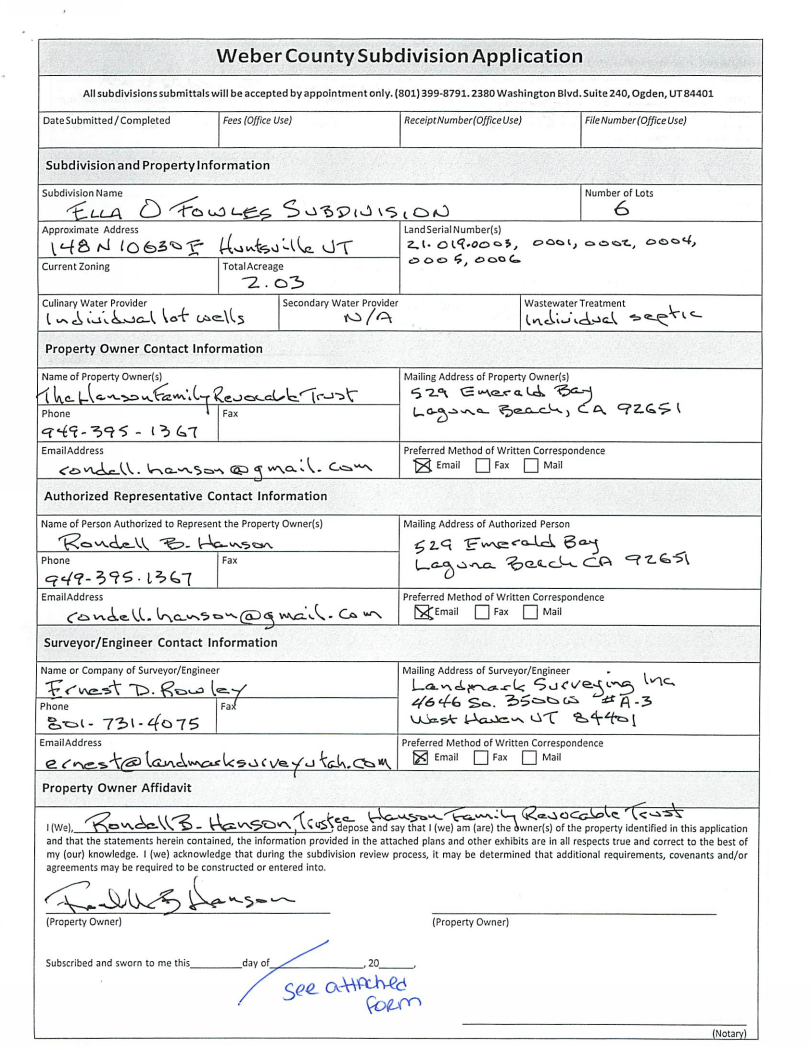 Weber County Subdivision Application
All subdivisions submittals will be accepted by appointment only. (801) 399-8791. 2380 Washington Blvd. Suite 240, Ogden, UT 84401
Date Submitted / Completed
Fees (Office Use)
Receipt Number (Office Use)
File Number (Office Use)
Subdivision and Property Information
Subdivision Name
Ella O Fowles Subdivision
Number of Lots
6
Approximate Address
148 N 10630 E Huntsville UT
Land Serial Number(s)
21.019.0003, 0001, 0002, 0004,
0005, 0006
Current Zoning
Total Acreage
2.03
Culinary Water Provider
Individual lot wells
Secondary Water Provider
N/A
Wastewater Treatment
Individual septic
Property Owner Contact Information
Name of Property Owner(s)
The Hanson Family Revocable Trust
Mailing Address of Property Owner(s)
529 Emerald Bay
Laguna Beach, CA 92651
Phone
949-395-1367
Fax
Email Address
rondell.hanson@gmail.com
Preferred Method of Written Correspondence
Email Fax Mail
Authorized Representative Contact Information
Name of Person Authorized to Represent the Property Owner(s)
Rondell B. Hanson
Mailing Address of Authorized Person
529 Emerald Bay
Laguna Beach CA 92651
Phone
949-395.1367
Fax
Email Address
rondell.hanson@gmail.com
Preferred Method of Written Correspondence
Email Fax Mail
Surveyor/Engineer Contact Information
Name or Company of Surveyor/Engineer
Ernest D. Rowley
Mailing Address of Surveyor/Engineer
Landmark Surveying Inc
4646 So. 3500 W #A-3
West Haven UT 84401
Phone
801-731-4075
Fax
Email Address
ernest@landmarksurveyutah.com
Preferred Method of Written Correspondence
Email Fax Mail
Property Owner Affidavit
I (We), Rondell B. Hanson, Trustee Hanson Family Revocable Trust depose and say that I (we) am (are) the owner(s) of the property identified in this application
and that the statements herein contained, the information provided in the attached plans and other exhibits are in all respects true and correct to the best of
my (our) knowledge. I (we) acknowledge that during the subdivision review process, it may be determined that additional requirements, covenants and/or
agreements may be required to be constructed or entered into.
Rondell B Hanson
(Property Owner)
(Property Owner)
Subscribed and sworn to me this day of , 20 ,
See attached
form
(Notary)